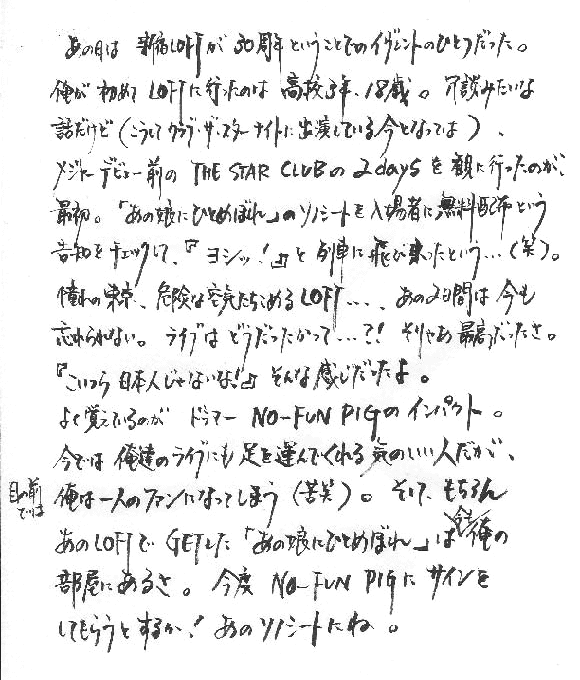 あの日は 新宿LOFTが 30周年ということでのイヴェントのひとつだった。
俺が 初めて LOFTに行ったのは 高校3年、18歳。 冗談みたいな
話だけど(こうしてクラブ・ザ・スターナイトに出演している今となっては)、
メジャーデビュー前の THE STAR CLUBの 2daysを 観に行ったのが、
最初。「あの娘にひとめぼれ」のソノシートを入場者に無料配布という
告知をチェックして、『ヨシッ!』と 列車に飛び乗ったという…(笑)。
憧れの東京、危険な空気たちこめるLOFT…、あの2日間は 今も
忘れられない。 ライブは どうだったかって…?! そりゃあ 最高だったさ。
『こいつら 日本人じゃないな!』そんな感じだったよ。
よく覚えているのが ドラマー NO-FUN PIGのインパクト。
今では 俺達のライブにも 足を運んでくれる 気のいい人だが、
目の前では 俺は一人のファンになってしまう(苦笑)。 そして、もちろん
あのLOFTで GETした「あの娘にひとめぼれ」は 今も 俺の
部屋にあるさ。 今度 NO-FUN PIGに サインを
してもらうとするか! あのソノシートにね。